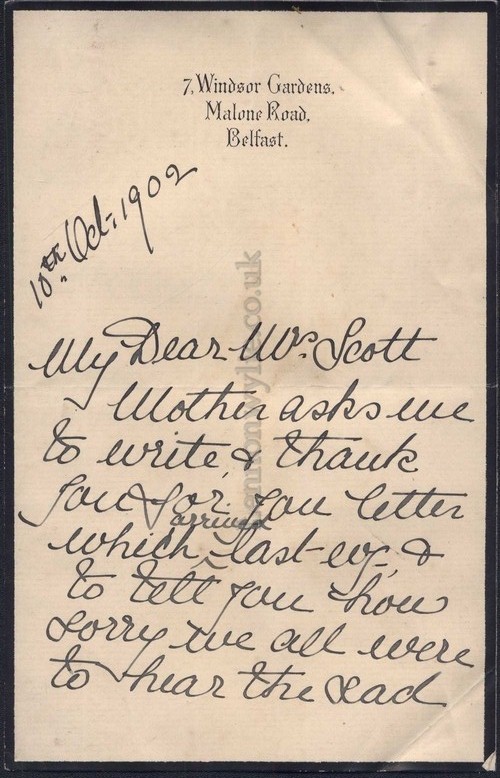 7, Windsor Gardens,
Malone Road,
Belfast.
10th Oct. 1902
My Dear Mrs. Scott
Mother asks me
to write & thank
you for you letter
arrived
which last evg., &
to tell you how
sorry we all were
to hear the sad